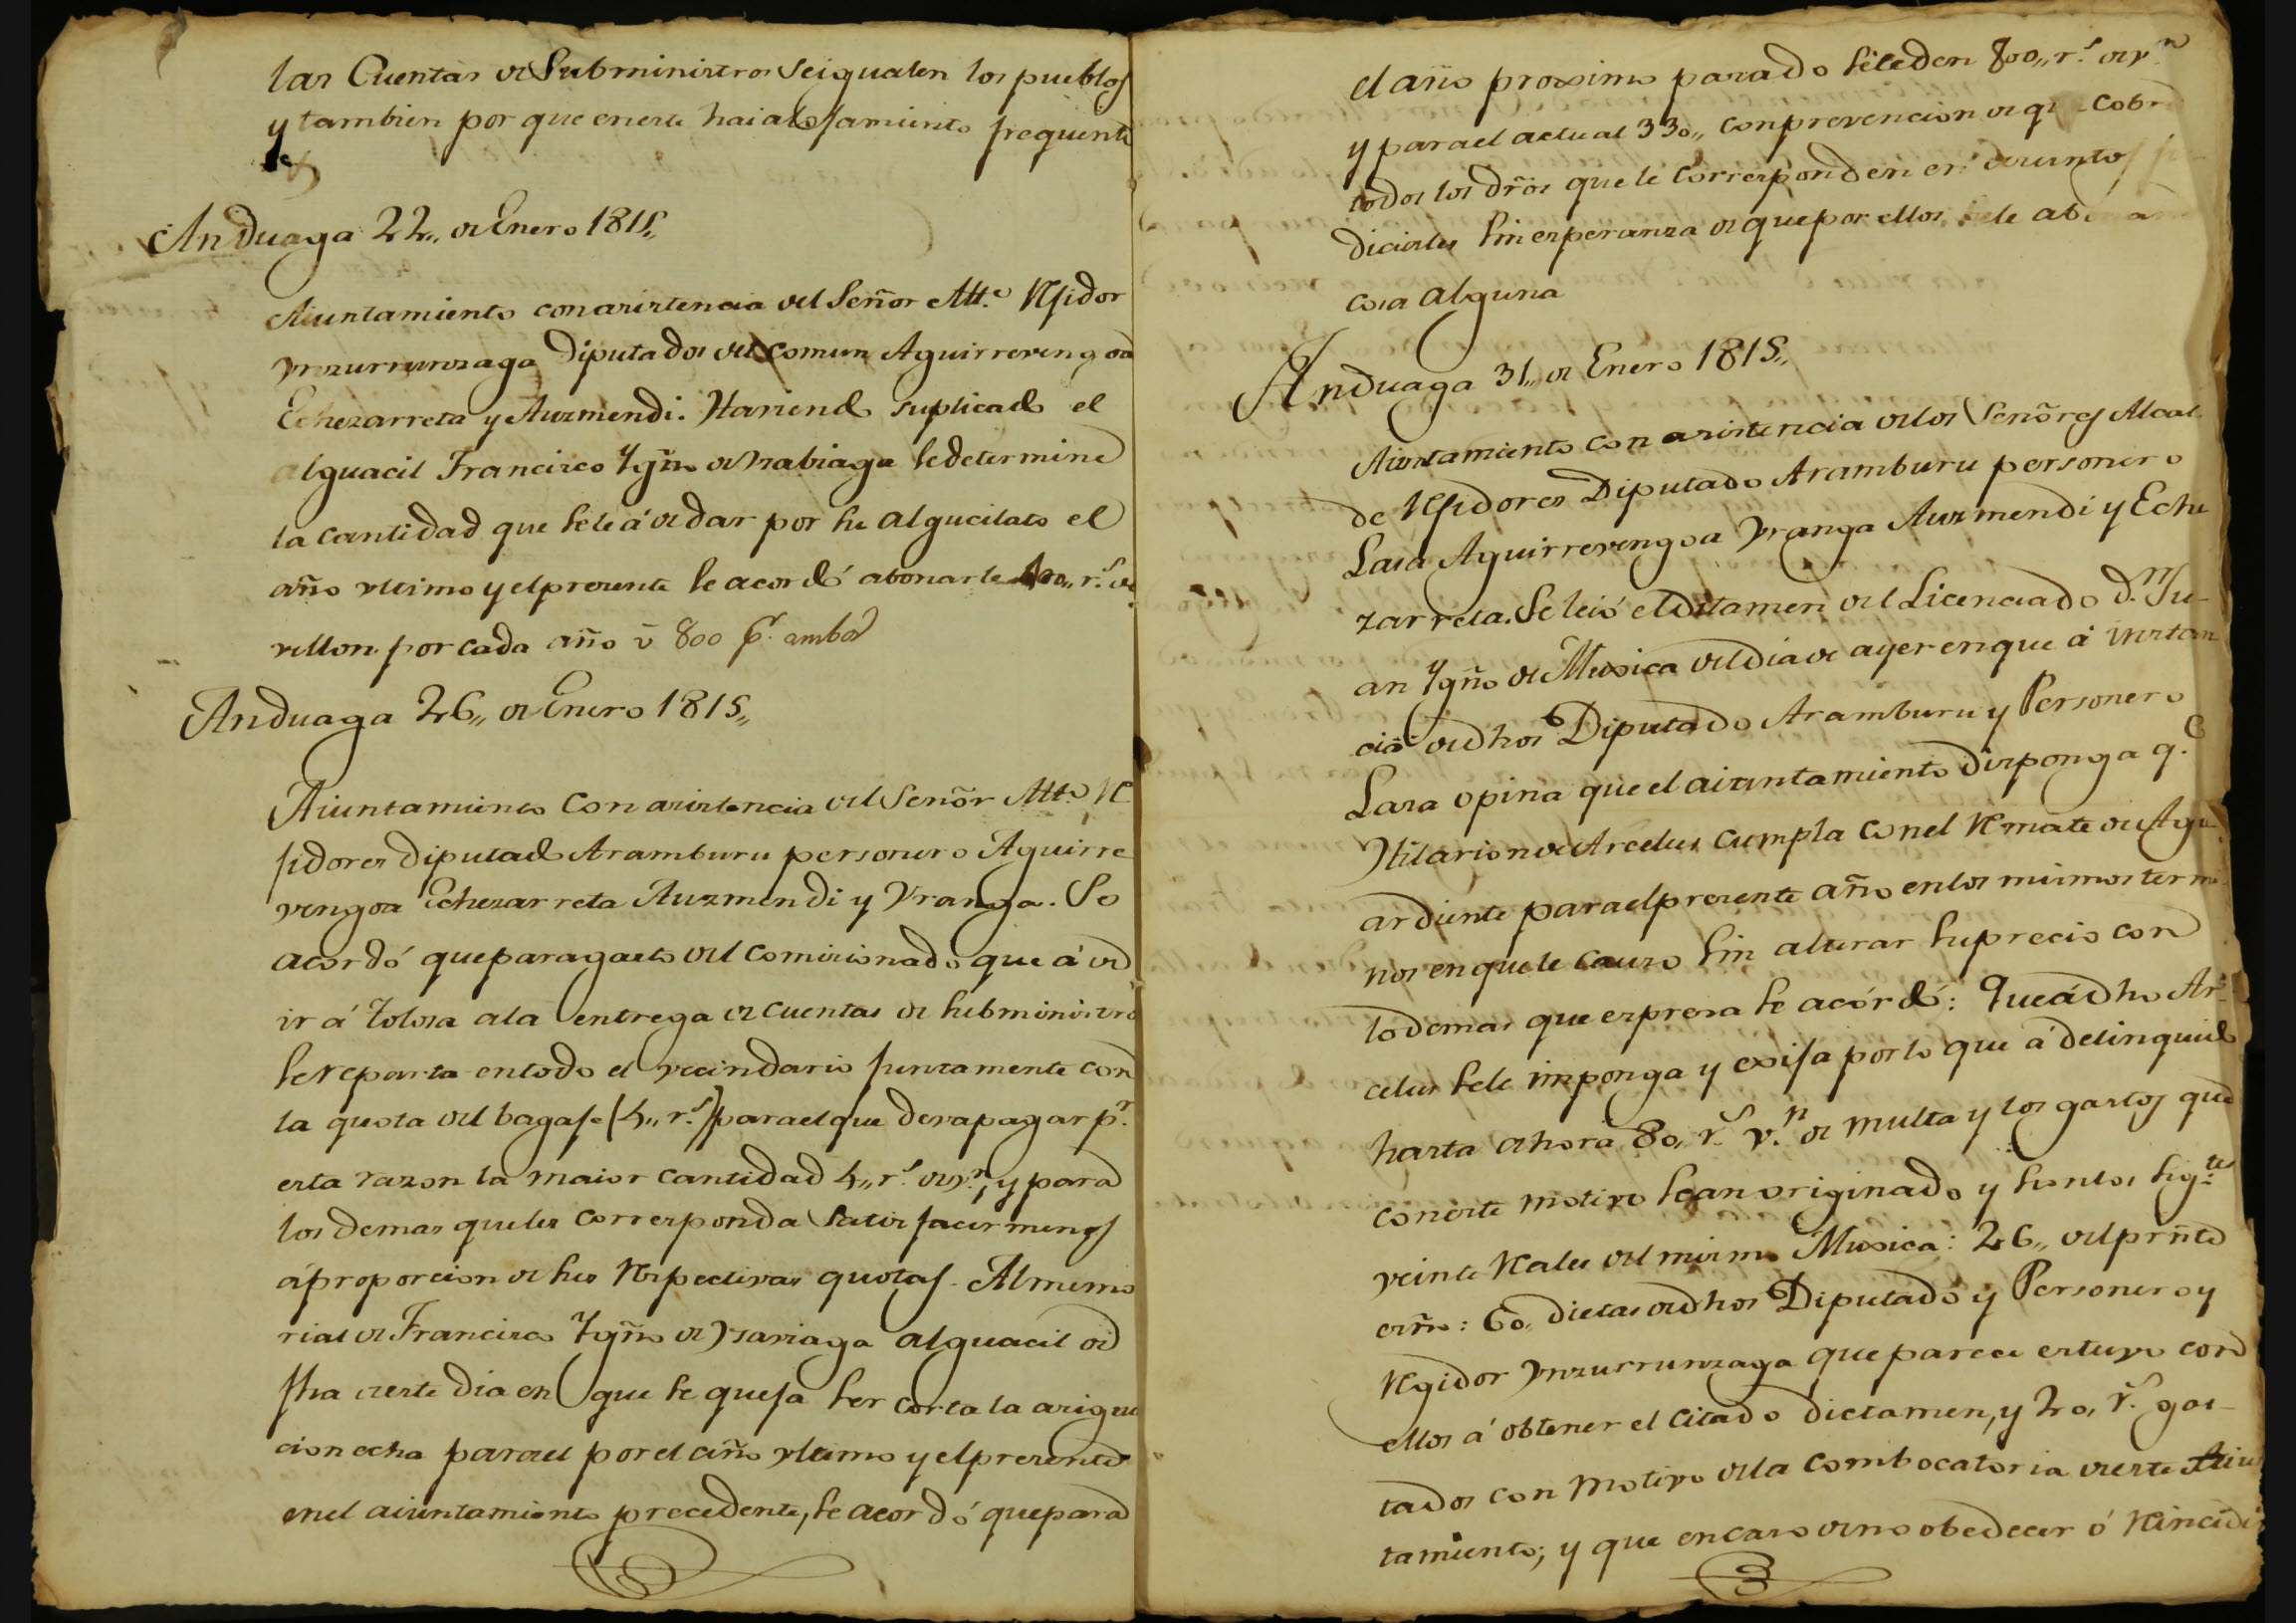 las Cuentas de Subministros se igualen los pueblos
y tambien por que en este hai alojamiento frequente
Anduaga 22,, de Enero 1815,,
Aiuntamiento con asistencia del Señor Alte. Regidor
Ynzurrunzaga Diputados del Comun Aguirrevengoa
Echezarreta y Auzmendi. Haviendo suplicado el
alguacil Francisco Ygño de Ysasiaga se determine
la cantidad que se le á de dar por su alguacilato el
año vltimo y el presente se acordó abonarle 400,, rs. de
vellon por cada año ū 800 pr. ambos
Anduaga 26,, de Enero 1815,,
Aiuntamiento con asistencia del Señor Alte. Re
gidores diputado Aramburu personero Aguirre
vengoa Echezarreta Auzmendi y Vranga. Se
acordó que para gasto del comisionado que á de
ir á Tolosa a la entrega de cuentas de subministro
se reparta en todo el vecindario juntamente con
la quota del bagaje (4,, rs.) para el que deva pagar pr.
esta razon la maior cantidad 4,, rs. de vn., y para
los demas que les corresponda satisfacer menos
á proporcion de sus respectivas quotas. Al memo
rial de Francisco Ygño de Ysasiaga alguacil de
fha de este dia en que se queja ser corta la asigna
cion echa para el por el año vltimo y el presente
en el aiuntamiento precedente, se acordó que para
el año proximo pasado se le den 800,, rs. de vn
y para el actual 330,, con prevencion de que cobre
todos los dros. que le corresponden en asuntos
diciales sin esperanza de que por ellos se le abonara
cosa alguna
Anduaga 31,, de Enero 1815,,
Aiuntamiento con asistencia de los Señores Alcal
de Regidores Diputado Aramburu personero
Lasa Aguirrevengoa Vranga Auzmendi y Eche
zarreta. Se leió el ditamen del Licenciado dn. Ju-
an Ygño de Muxica del dia de ayer en que á instan
cia de dhos Diputado Aramburu y Personero
Lasa opina que el aiuntamiento disponga q.e
Hilarion de Arcelus cumpla con el Remate de Agu
ardiente para el presente año en los mismos termi
nos en que le causo sin alterar su precio con
lo demas que expresa se acórdó: Que á dho Ar-
celus se le imponga y exija por lo que á delinquido
hasta ahora 80,, rs. vn. de multa y los gastos que
con este motivo se an originado y son los sigtes.
veinte Reales del mismo Muxica: 26,, del prnte
esño: 60,, dietas de dhos Diputado y Personero y
Regidor Ynzurrunzaga que parece estuvo con
ellos á obtener el citado dictamen, y 20,, rs. gas-
tados con motivo de la combocatoria de este Aiun
tamiento; y que en caso de no obedecer ó Reincidir